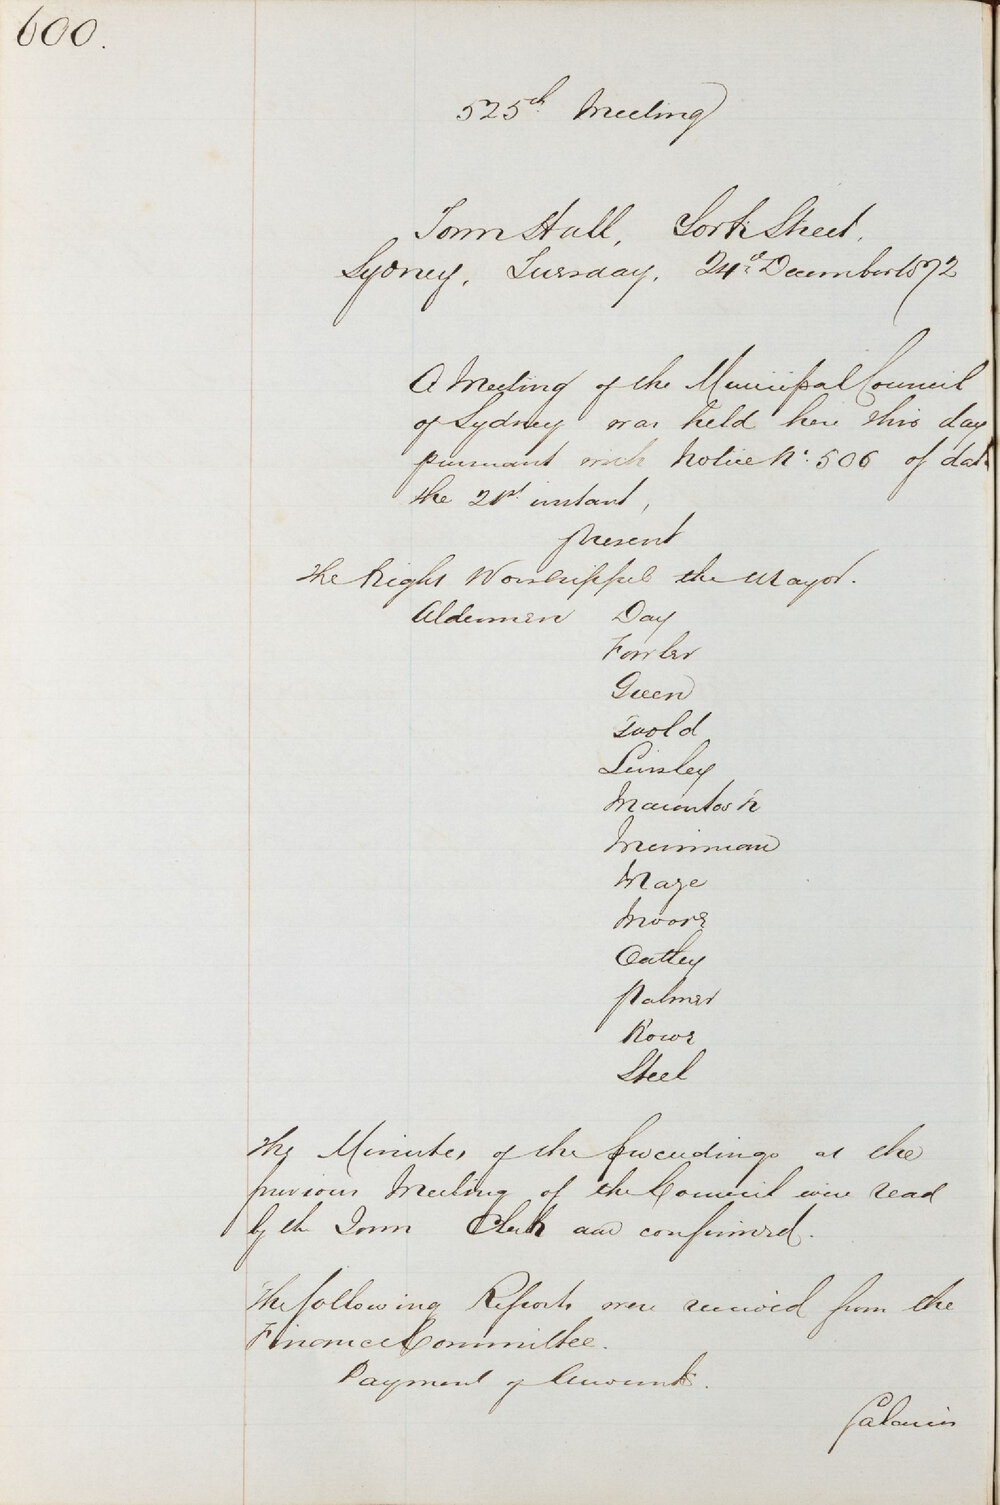 600.
525th Meeting
Town Hall, York Street,
Sydney, Tuesday, 24th December 1872
A Meeting of the Municipal Council
of Sydney was held here this day
pursuant with Notice No. 506 of date
the 21st instant,
present
The Right Worshipful the Mayor.
Aldermen Day
Fowler
Green
Linsley
Macintosh
Merriman
Maze
Moore
Oatley
Palmer
Rowe
Steel
The Minutes of the proceedings at the
previous Meeting of the Council were read
by the Town Clerk and confirmed.
The following Reports were received from the
Finance Committee.
Payment of Accounts.
Salaries